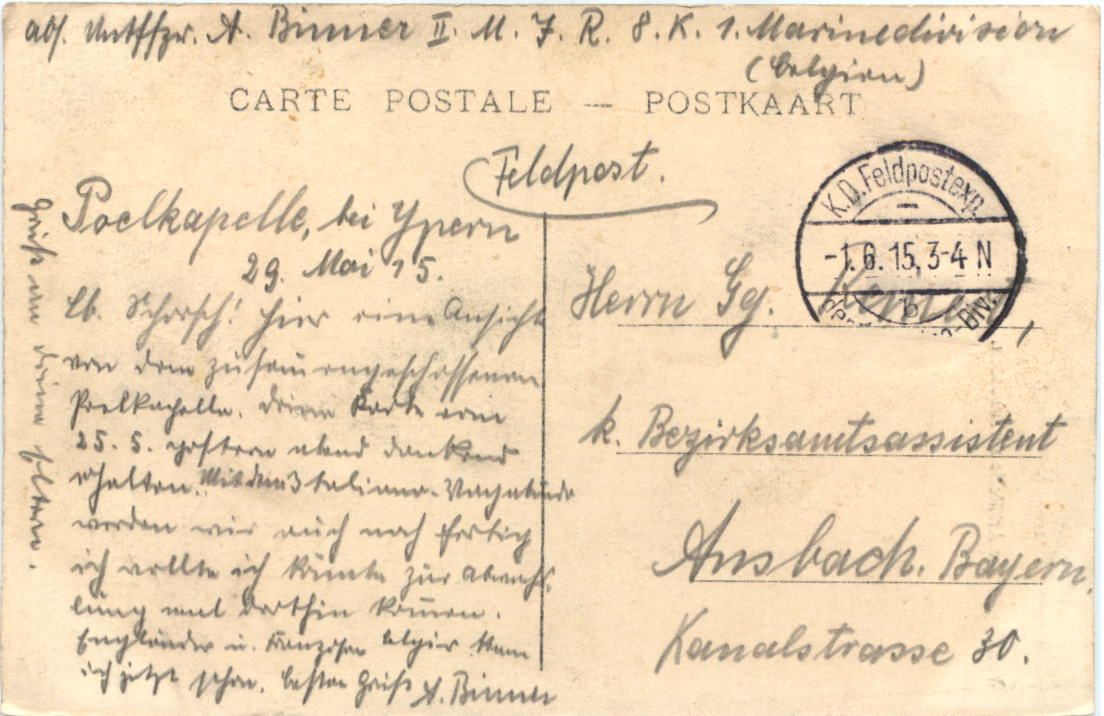 abs. Untffzr. A. Binner II. M. I. R. 8. K. 1. Marinedivision
(Belgien)
CARTE POSTALE — POSTKAART
Feldpost.
K.D. Feldpostexp.
-1.6.15, 3-4 N
b
Poelkapelle, bei Ypern
29. Mai 15.
lb. Schorsch! Hier eine Ansicht
von dem zusammengeschossenen
Poelkapelle. Deine Karte vom
25. 5. gestern abend dankend
erhalten. Mit den Italiano-Vagabunde
werden wir auch noch fertig
ich wollte ich könnte zur Abwechs-
lung mal dorthin kommen.
Engländer u. Franzosen Belgier kenn
ich jetzt schon. Besten Gruß A. Binner
Gruß an deine Eltern.
Herrn Gg.
k. Bezirksamtsassistent
Ansbach. Bayern,
Kanalstrasse 30.